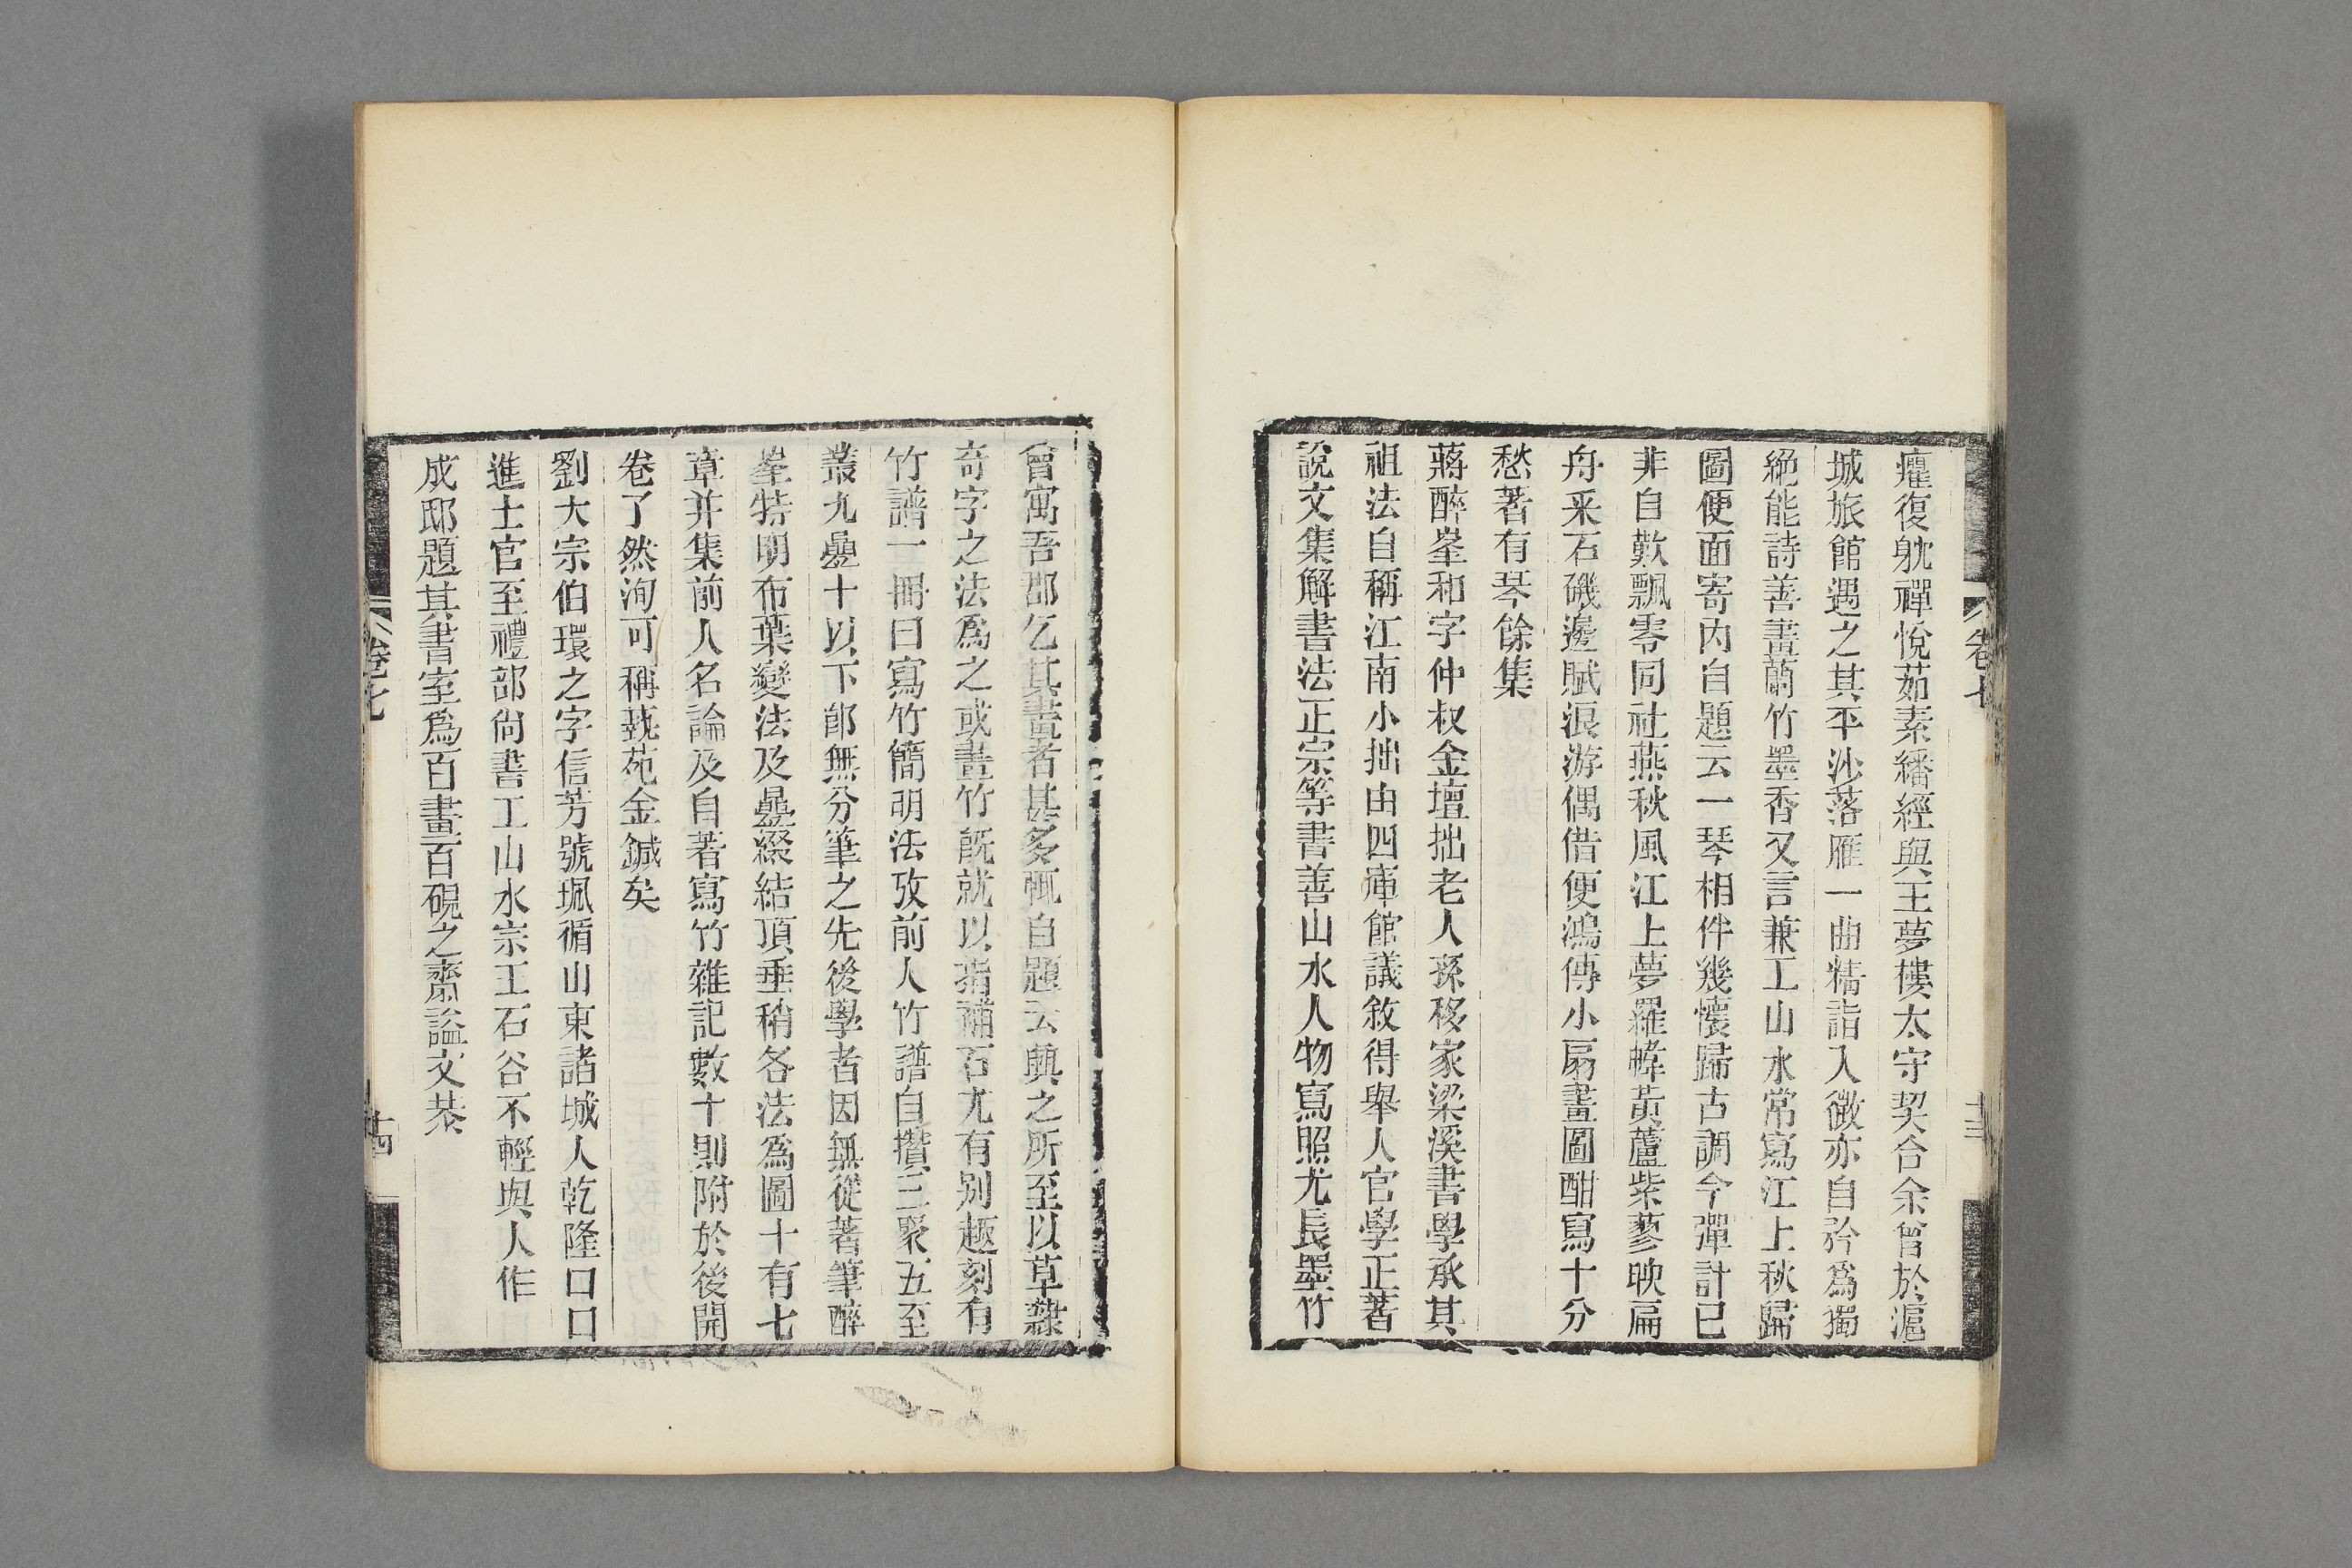 癯復躭禪悅茹素繙經與王夢樓太守契合余曾於滬
城旅館遇之其平沙落雁一曲精詣入微亦自矜爲獨
絕能詩善畫蘭竹墨香又言兼工山水常寫江上秋歸
圖便面寄內自題云一琴相伴幾懷歸古調今彈計已
非自歎飄零同社燕秋風江上夢羅幃黃蘆紫蓼映扁
舟采石磯邊賦浪游偶借便鴻傳小扇畫圖酣寫十分
愁著有琴餘集
蔣醉峯和字仲叔金壇拙老人孫移家梁溪書學承其
祖法自稱江南小拙由四庫館議敘得舉人官學正著
說文集解書法正宗等書善山水人物寫照尤長墨竹
卷七
十三
曾寓吾郡乞其畫者甚多輒自題云興之所至以草隸
奇字之法爲之或畫竹旣就以指補石尤有别趣刻有
竹譜一冊曰寫竹簡明法攷前人竹譜自攢三聚五至
叢九疊十以下卽無分筆之先後學者因無從著筆醉
峯特明布葉變法及疊綴結頂垂稍各法爲圖十有七
章并集前人名論及自著寫竹雜記數十則附於後開
卷了然洵可稱蓺苑金鍼矣
劉大宗伯環之字信芳號珮循山東諸城人乾隆口口
進士官至禮部尙書工山水宗王石谷不輕與人作
成邸題其書室爲百畫百硯之齋謚文恭
卷七
十四